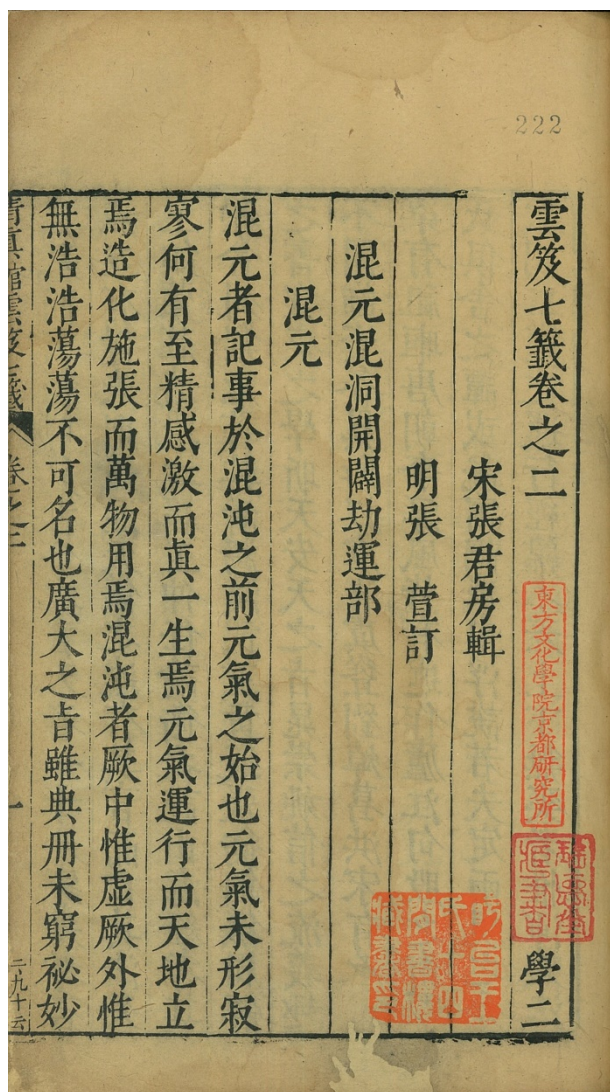 222
雲笈七籤卷之二
學二
東方文化學院京都研究所
宋張君房輯
明張 萱訂
混元混洞開闢劫運部
混元
混元者記事於混沌之前元氣之始也元氣未形寂
寥何有至精感激而眞一生焉元氣運行而天地立
焉造化施張而萬物用焉混沌者厥中惟虛厥外惟
無浩浩蕩蕩不可名也廣大之㫖雖典冊未窮祕妙
清真館雲笈七籤 卷之二 一